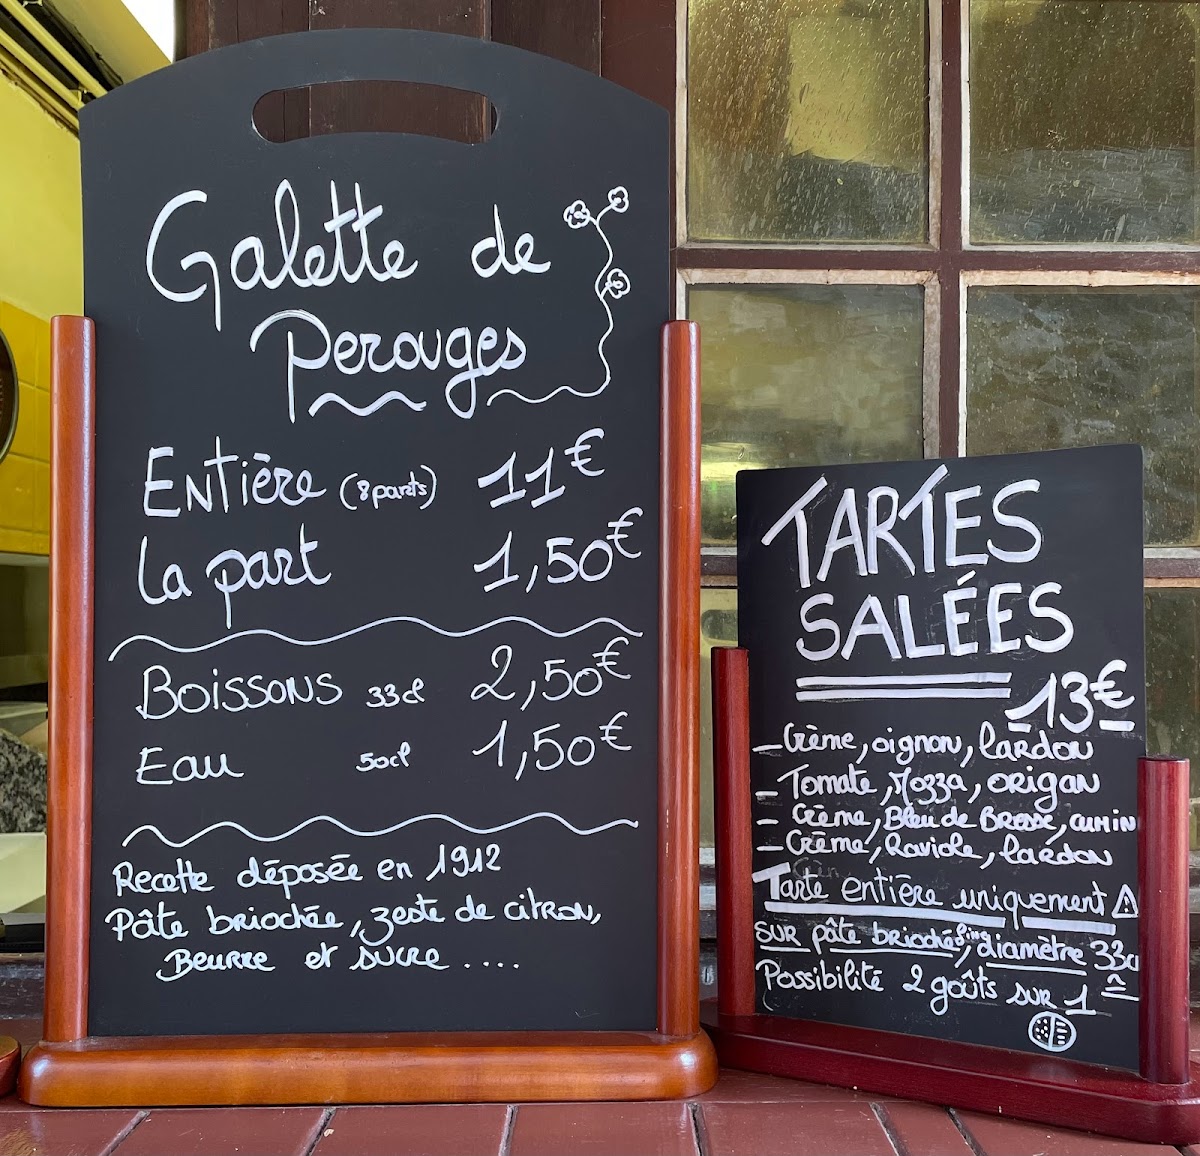 Galette de
Perouges
Entière (8 parts) 11€
La part 1,50€
Boissons 33cl 2,50€
Eau 50cl 1,50€
Recette déposée en 1912
Pâte briochée, zeste de citron,
Beurre et sucre ....
TARTES
SALÉES
13€
- Crème, oignon, lardon
- Tomate, Mozza, origan
- Crème, Bleu de Bresse, cumin
- Crème, Raviole, lardon
Tarte entière uniquement ⚠
sur pâte briochée fine, diamètre 33c
Possibilité 2 goûts sur 1